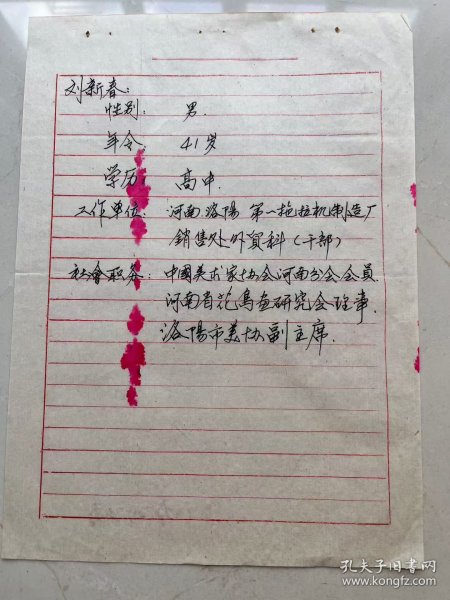 刘新春：
性别： 男.
年令： 41岁
学历： 高中.
工作单位： 河南洛陽第一拖拉机制造厂
銷售处外貿科（干部）
社會职务： 中國美术家协会河南分会会员
河南省花鸟画研究会理事.
洛陽市美协副主席.
孔夫子旧书网
www.kongfz.com